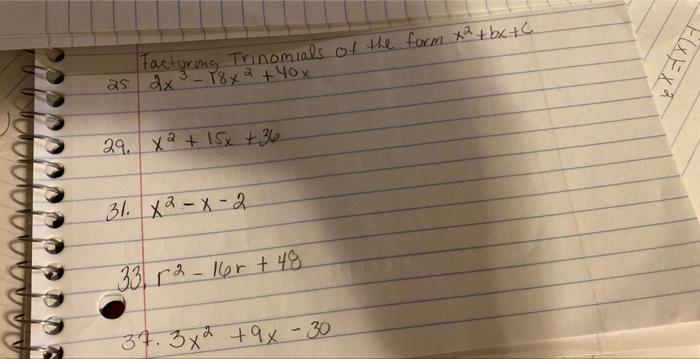 Factoring Trinomials of the form x² + bx + c
25 2x³ - 18x² + 40x
29. x² + 15x + 36
31. x² - x - 2
33. r² - 16r + 48
37. 3x² + 9x - 30